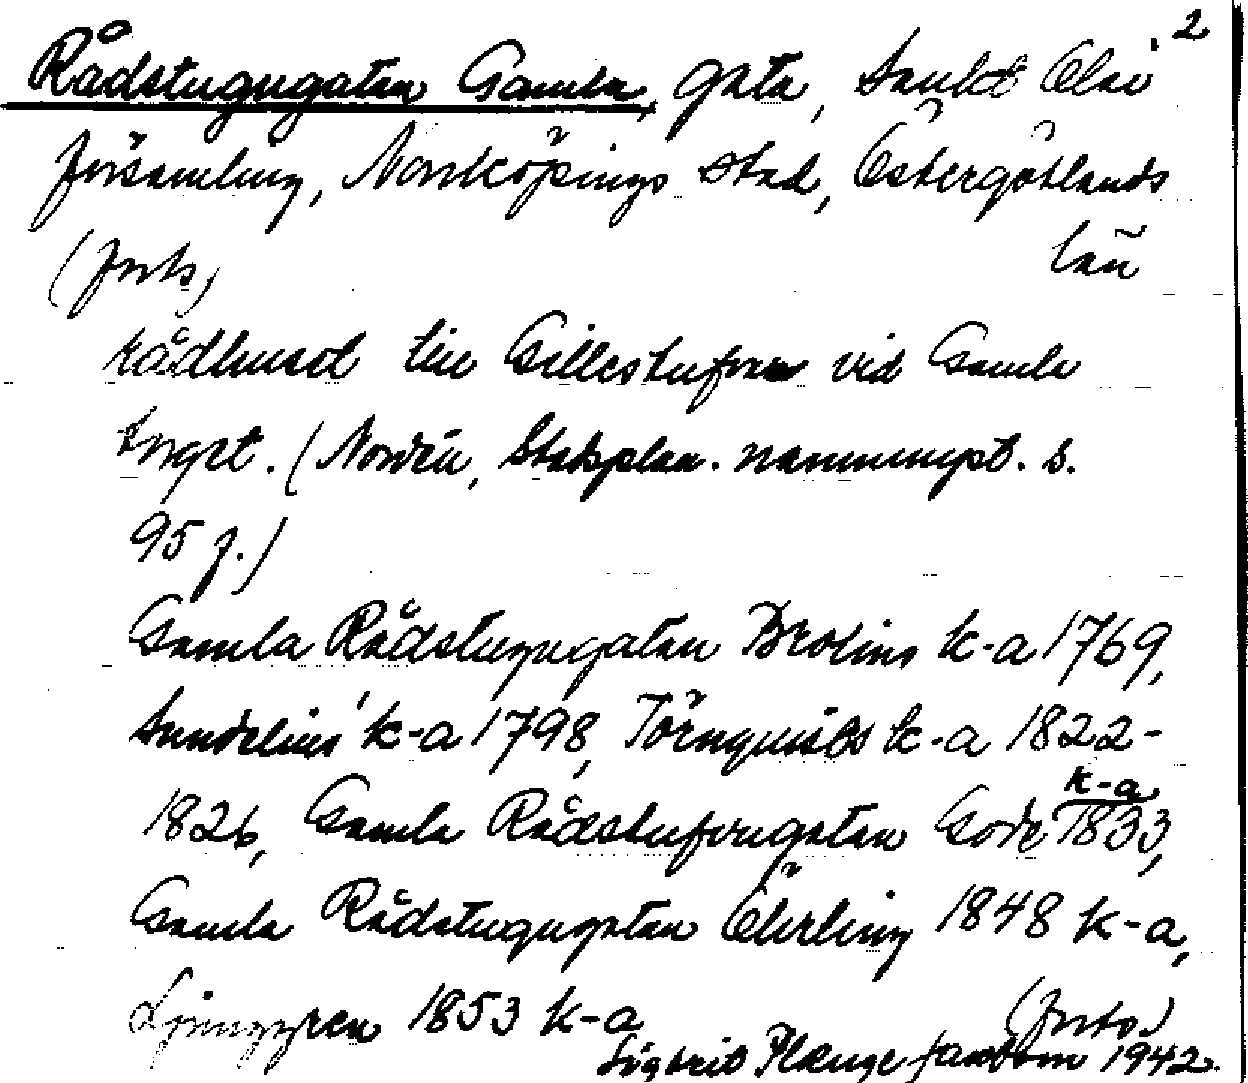 2
Rådstugugatan Gamla, gata, Sankt Olai
församling, Norrköpings stad, Östergötlands
län
(forts)
rådhuset till Gillestufvan vid Gamla
torget. (Nordén, Stadsplan. namnskyst. s.
95 f.)
Gamla Rådstugugatan Brolins k-a 1769,
Sundelius' k-a 1798, Törnquists k-a 1822-
1826, Gamla Rådstufvugatan Gode k-a 1833,
Gamla Rådstugugatan Öhrling 1848 k-a,
Ljunggren 1853 k-a (forts.)
Sigbrit Plænge Jacobson 1942.